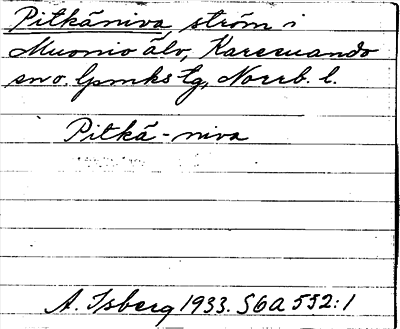 Pitkäniva ström i
Muonio älv, Karesuando
sn o. lpmks tg, Norrb. l.
Pitkä-niva
A. Isberg 1933. S6A 552:1